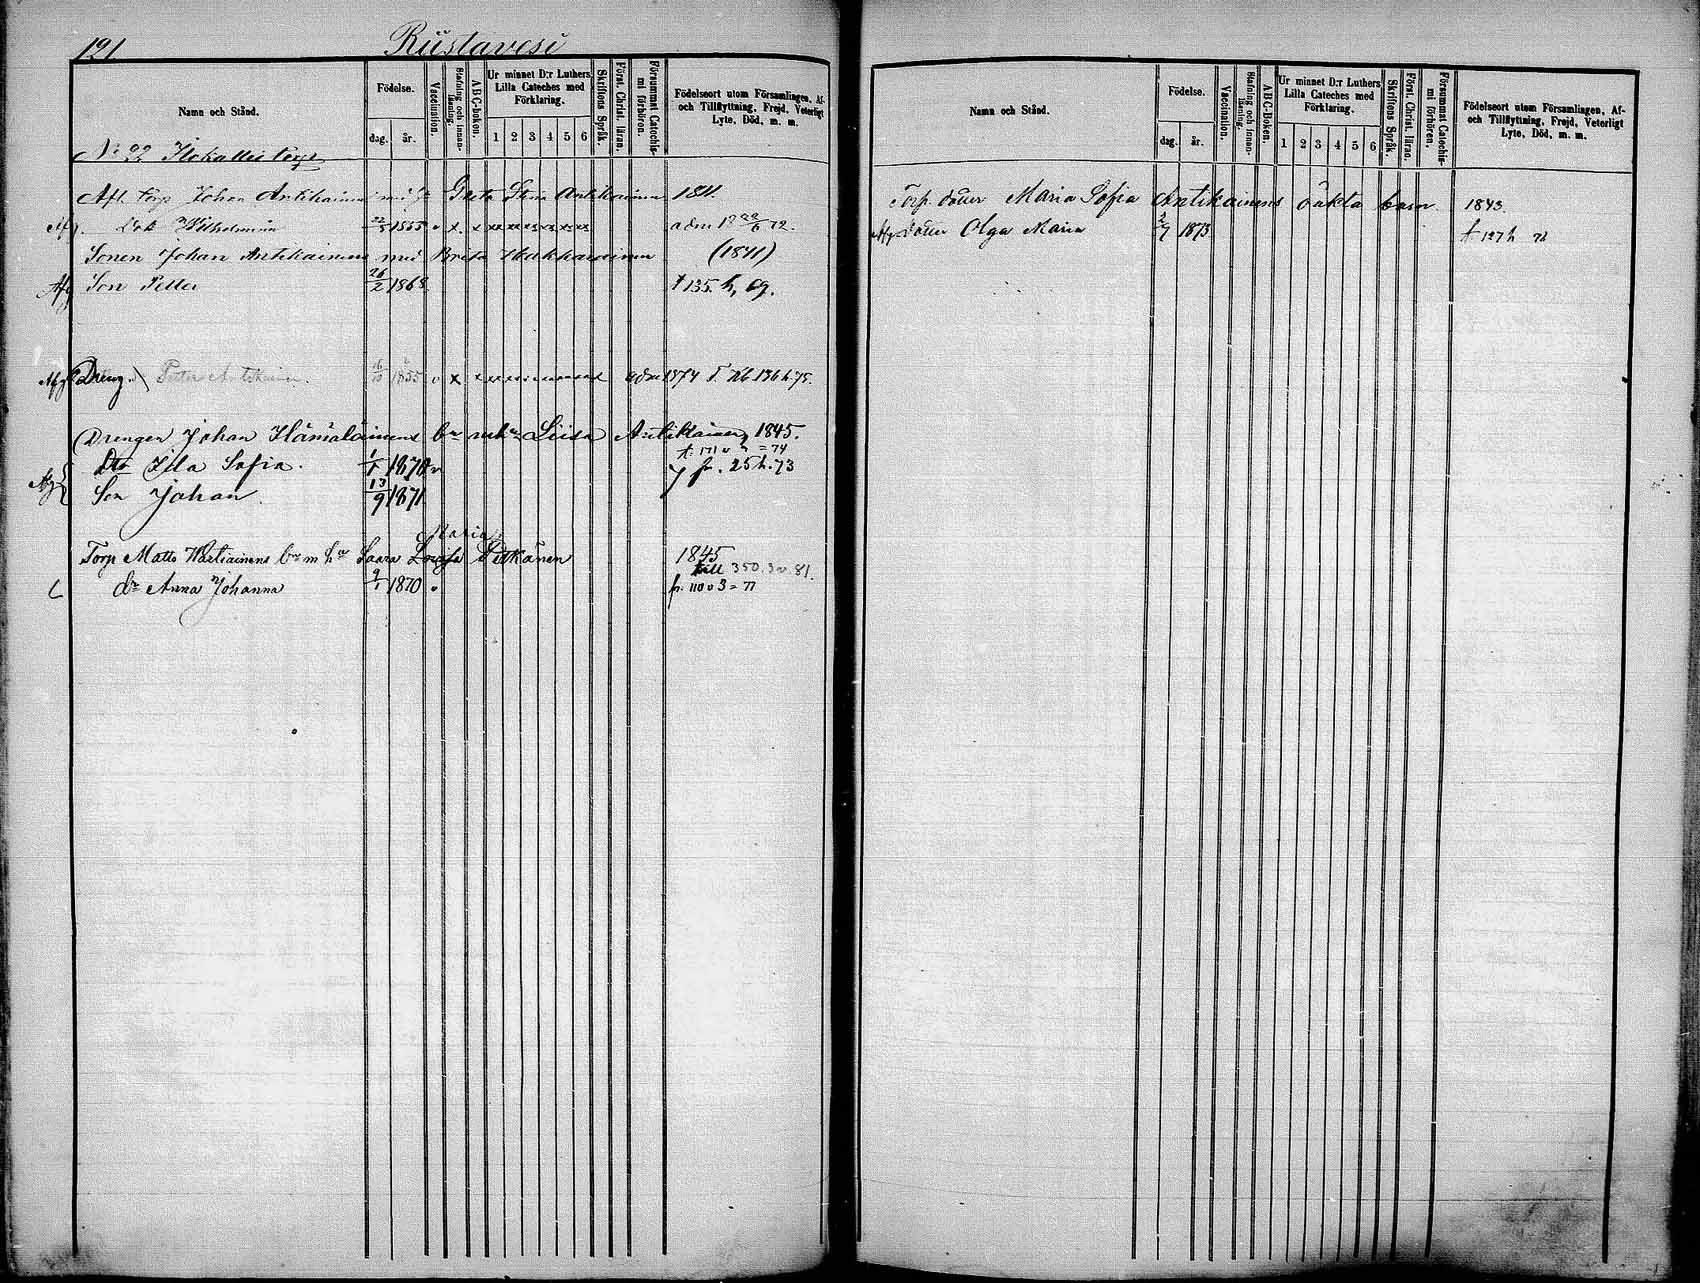 121
Riistavesi
Namn och Stånd.
Födelse.
dag. år.
Vaccination.
Stafning och innanläsning.
ABC-boken.
Ur minnet D:r Luthers Lilla Cateches med Förklaring.
1 2 3 4 5 6
Skriftens Språk.
Först. Christ. läran.
Försummat Catechismi förhören.
Födelseort utom Församlingen, Af- och Tillflyttning, Frejd, Veterligt Lyte, Död, m. m.
No 22 torp
Afl. torp Johan Antikainen med Greta Stina Antikainen 1811.
Dotr Wilhelmina 22/5 1855 v x x xx xx xx xx xx adm 18 22/6 72.
Sonen Johan Antikainens med Brita Hakkarainen (1841)
Afg Son Petter 26/2 1868. † 135. h, 69.
Afg Dreng Petter Antikainen 16/10 1855 v x x adm 1874 136 h. 75.
Drengen Johan Hämäläinens br m hu Liisa Antikainen, 1845.
t. 171 v = 74
Afg Dtr Ida Sofia. 1/1 1870 v fr. 25 h. 73
Son Johan 13/9 1871.
Maria
Torp Matts Wartiainens br m hr Saara Lovisa Pitkänen 1845
till 350.3 v. 81.
dr Anna Johanna 9/1 1870 v fr. 110 v 3 = 77
Namn och Stånd.
Födelse.
dag. år.
Vaccination.
Stafning och innanläsning.
ABC-Boken.
Ur minnet D:r Luthers Lilla Cateches med Förklaring.
1 2 3 4 5 6
Skriftens Språk.
Först. Christ. läran.
Försummat Catechismi förhören.
Födelseort utom Församlingen, Af- och Tillflyttning, Frejd, Veterligt Lyte, Död, m. m.
Torp. dotter Maria Sofia Antikainens oäkta barn 1843.
Afg dotter Olga Maria 2/7 1873. t. 127 h 76